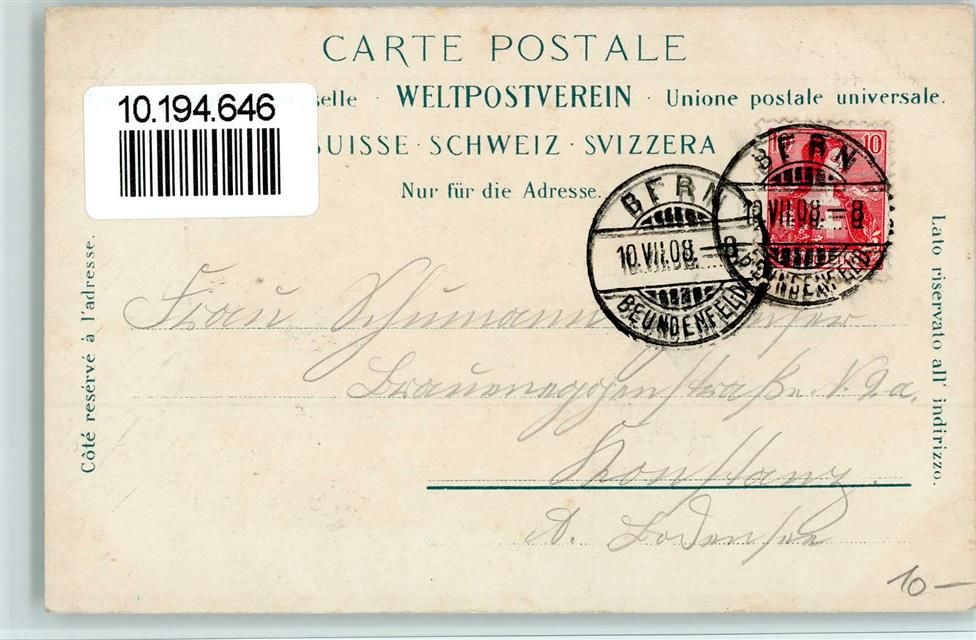 CARTE POSTALE
10.194.646
selle · WELTPOSTVEREIN · Unione postale universale.
SUISSE · SCHWEIZ · SVIZZERA
Nur für die Adresse.
10 10
BERN
10.VII.08.–8
BEUNDENFELD
BERN
10.VII.08.–8
BEUNDENFELD
Côté reservé à l'adresse.
Lato riservato all' indirizzo.
Frau Schumann
Braueneggerstraße N. 2a.
Konstanz
A. Bodensee
10–